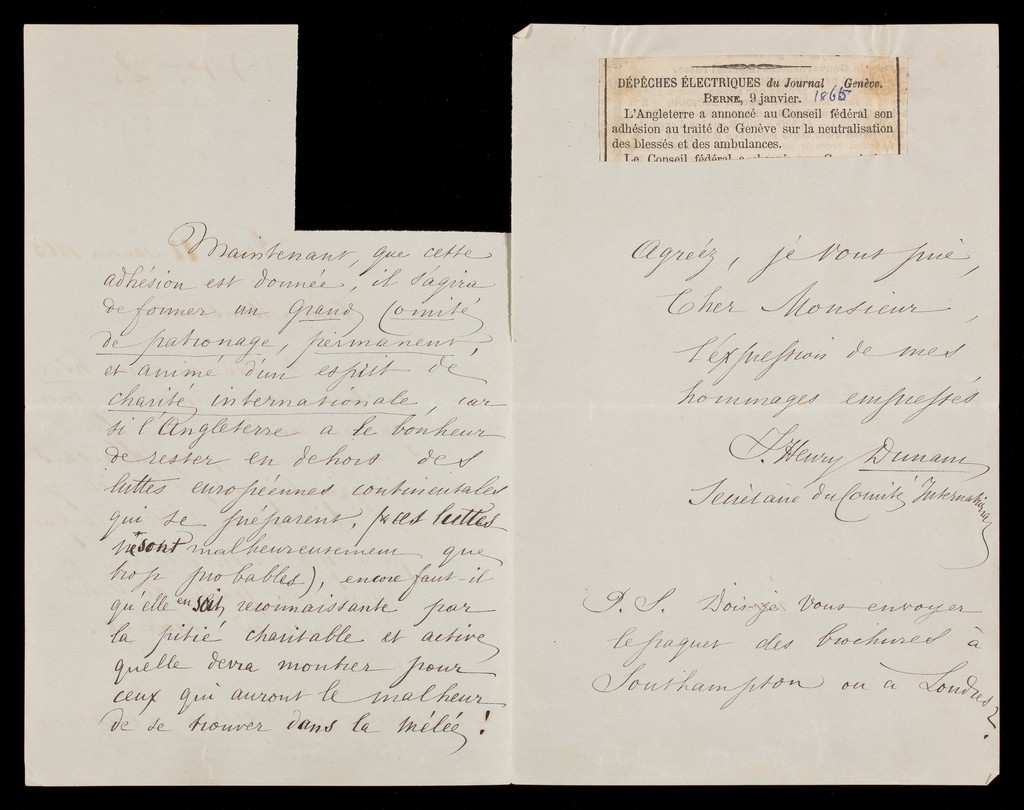 Maintenant, que cette
adhésion est donnée, il s'agira
de former un grand Comité
de patronage, permanent,
et animé d'un esprit de
charité internationale, car
si l'Angleterre a le bonheur
de rester en dehors des
luttes européennes continentales
qui se préparent, (& ces luttes
ne sont malheureusement que
trop probables), encore faut-il
qu'elle en soit reconnaissante par
la pitié charitable et active
qu'elle devra montrer pour
ceux qui auront le malheur
de se trouver dans la mêlée!
DÉPÊCHES ÉLECTRIQUES du Journal Genève.
BERNE, 9 janvier. 1865
L'Angleterre a annoncé au Conseil fédéral son
adhésion au traité de Genève sur la neutralisation
des blessés et des ambulances.
Le Conseil fédéral a
Agréez, je vous prie,
Cher Monsieur,
l'expression de mes
hommages empressés
J. Henry Dunant
Secrétaire du Comité International
P.S. Dois-je vous envoyer
le paquet des brochures à
Southampton ou à Londres?